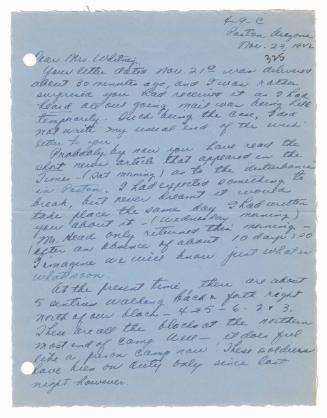 4-9-C
Poston Arizona
Nov. 23, 1942
325
Dear Mrs. Whitney,
Your letter dated Nov. 21st was delivered
about 30 minutes ago, and I was rather
surprised you had received it as I had
heard all out going mail was being held
temporarily. Such being the case, I did
not write my usual end of the week
letter to you.
Probably by now you have read the
short news article that appeared in the
Times — (Sat. morning) as to the disturbance
in Poston. I had expected something to
break, but never dreamt it would
take place the same day I had written
you about it — (Wednesday morning)
Mr. Head only returned this morning —
after an absence of about 10 days; so
I imagine we will know just what's
what soon.
At the present time there are about
5 sentries walking back & forth right
north of our block — 4 & 5 - 6 - 2 & 3.
These are all the blocks at the northern
most end of camp. Well — it does feel
like a prison camp now. These soldiers
have been on duty only since last
night however.